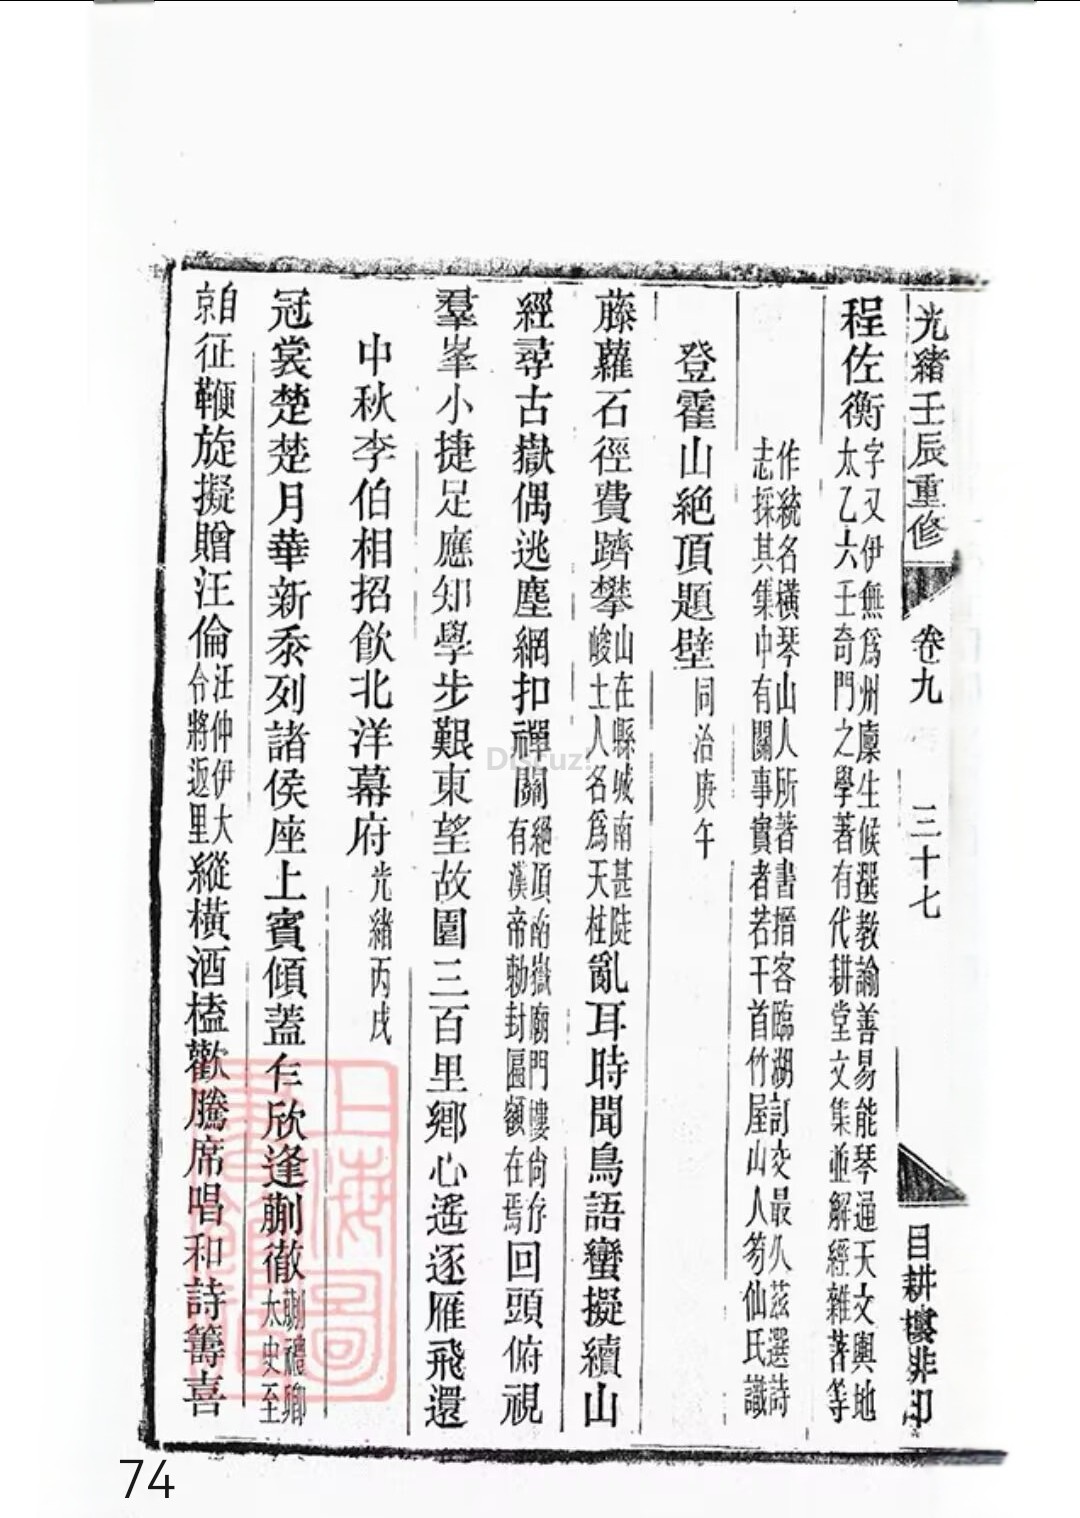 光緒壬辰重修 卷九 三十七 目耕樓排印
程佐衡字又伊無爲州廩生候選教諭善易能琴通天文輿地
太乙六壬奇門之學著有代耕堂文集並解經雜著等
作統名橫琴山人所著書搢客臨湖訂交最久茲選詩
志採其集中有關事實者若干首竹屋山人笏仙氏識
登霍山絶頂題壁同治庚午
藤蘿石徑費躋攀山在縣城南甚陡
峻土人名爲天柱亂耳時聞鳥語蠻擬續山
經尋古嶽偶逃塵網扣禪關絕頂南嶽廟門樓尙存
有漢帝勅封匾額在焉回頭俯視
羣峯小捷足應知學步艱東望故園三百里鄉心遙逐雁飛還
中秋李伯相招飮北洋幕府光緒丙戌
冠裳楚楚月華新忝列諸侯座上賓傾蓋乍欣逢蒯徹蒯禮卿
太史至
自
京征鞭旋擬贈汪倫汪仲伊大
令將返里縱橫酒榼歡騰席唱和詩籌喜
上海圖書館藏
Discuz!
74